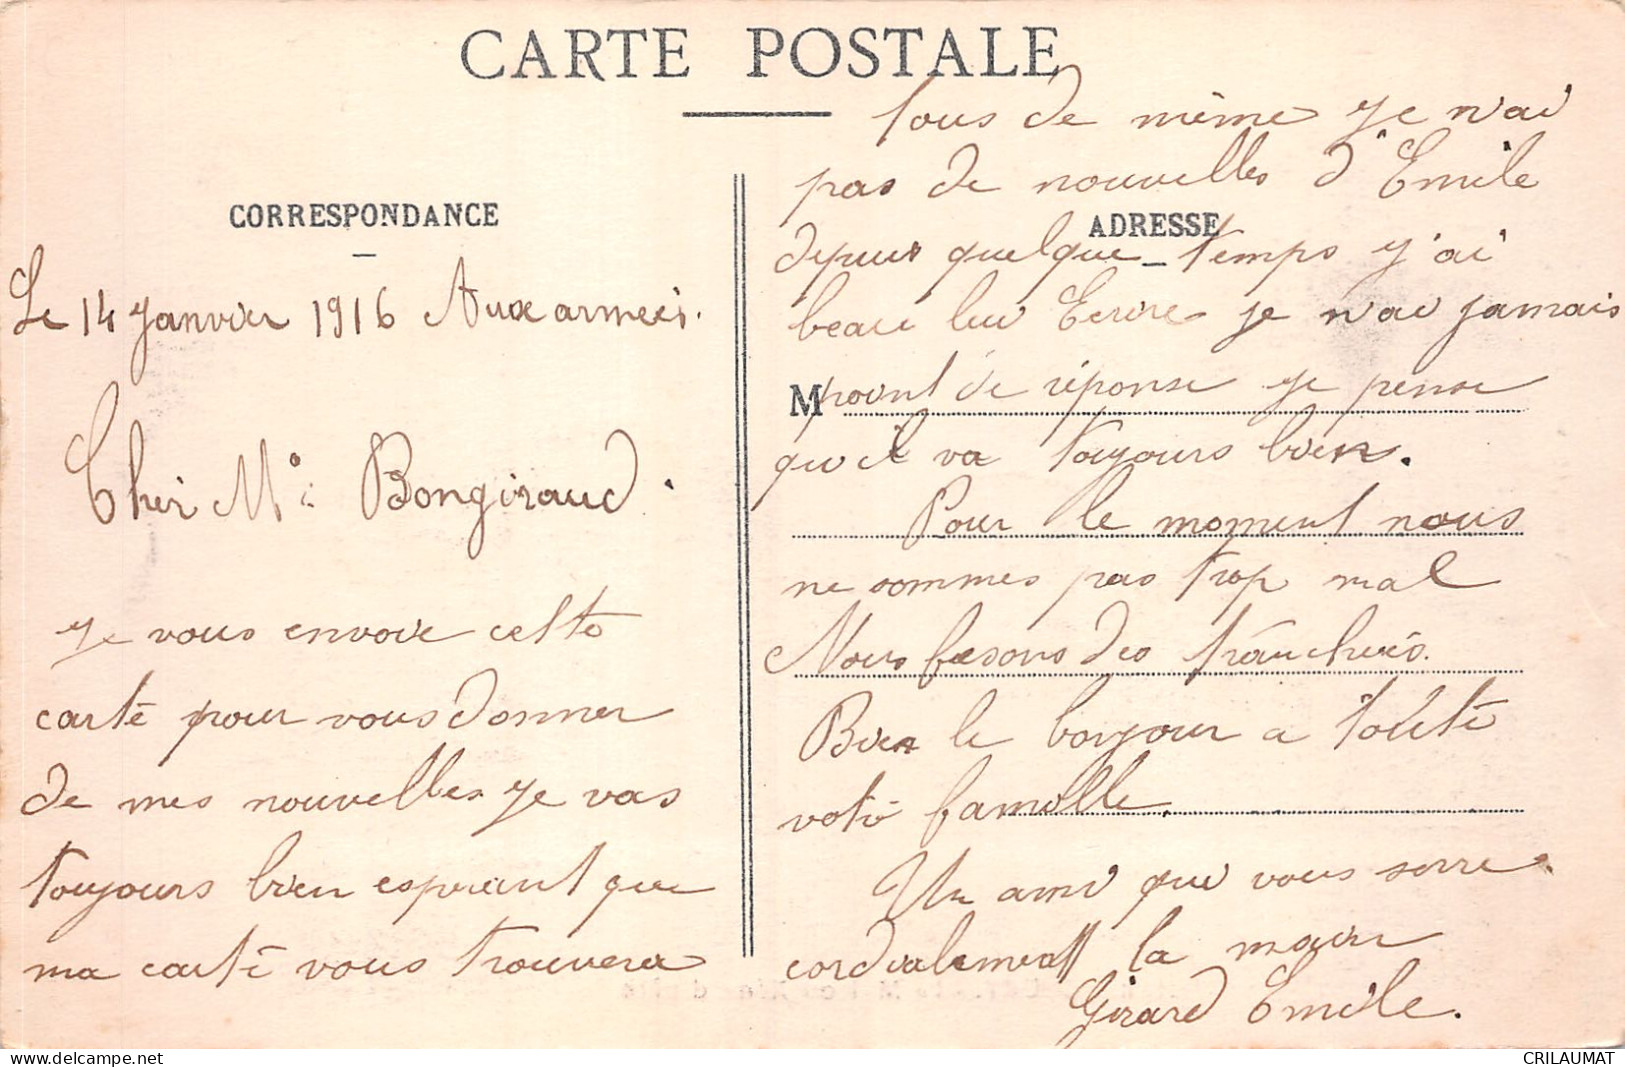 CARTE POSTALE
CORRESPONDANCE
Le 14 Janvier 1916 Aux armées.
Cher Mr Bongiraud.
Je vous envoie cette
carte pour vous donner
de mes nouvelles je vas
toujours bien esperant que
ma carte vous trouvera
tous de même je n'ai
pas de nouvelles d'Emile
ADRESSE
depuis quelque temps j'ai
beau lui Ecrire je n'ai jamais
M
point de réponse je pense
qu'il va toujours bien.
Pour le moment nous
ne sommes pas trop mal
Nous fesons des tranchées.
Bien le bonjour a toute
votre famille.
Un ami qui vous serre
cordialement la main
Girard Emile.
CRILAUMAT
delcampe.net